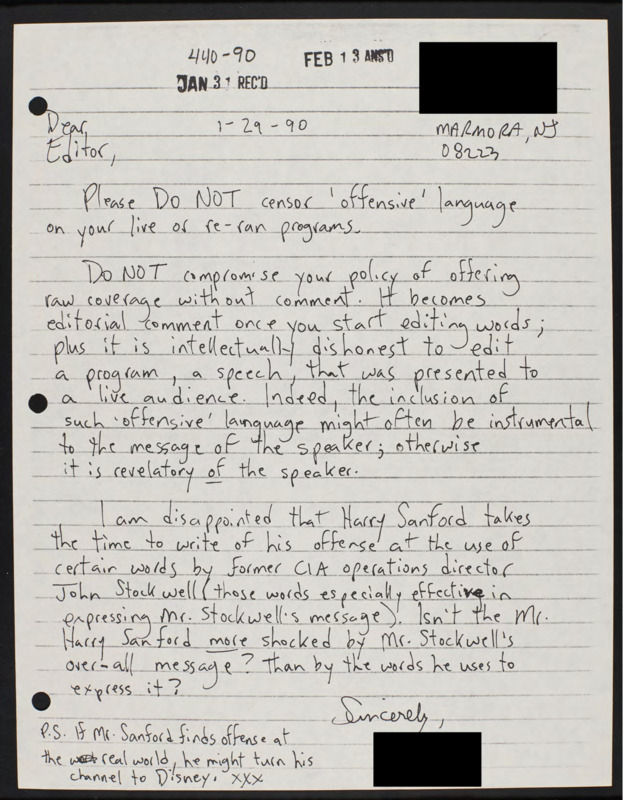 440-90
FEB 13 ANS'D
JAN 31 REC'D
Dear, 1-29-90 MARMORA, NJ
Editor, 08223
Please DO NOT censor 'offensive' language
on your live or re-ran programs.
DO NOT compromise your policy of offering
raw coverage without comment. It becomes
editorial comment once you start editing words;
plus it is intellectually dishonest to edit
a program, a speech, that was presented to
a live audience. Indeed, the inclusion of
such 'offensive' language might often be instrumental
to the message of the speaker; otherwise
it is revelatory of the speaker.
I am disappointed that Harry Sanford takes
the time to write of his offense at the use of
certain words by former CIA operations director
John Stockwell (those words especially effective in
expressing Mr. Stockwell's message). Isn't the Mr.
Harry Sanford more shocked by Mr. Stockwell's
over-all message? Than by the words he uses to
express it?
Sincerely,
P.S. If Mr. Sanford finds offense at
the real world, he might turn his
channel to Disney. xxx